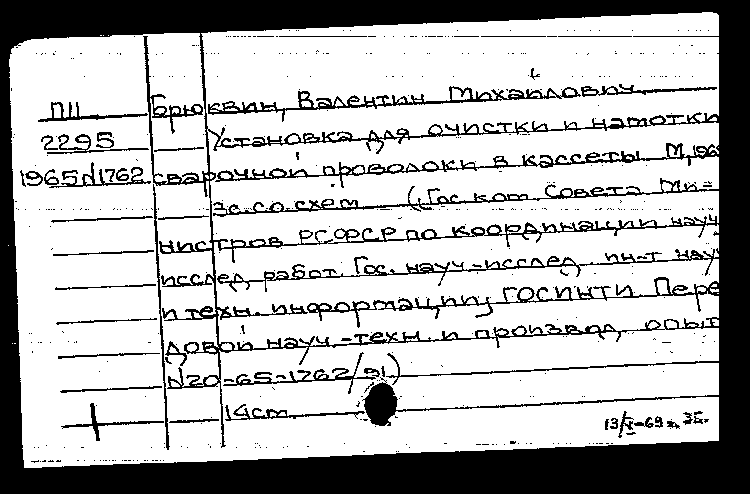 П11 Брюквин, Валентин Михайлович.
2295 Установка для очистки и намотки
1965 N1762 сварочной проволоки в кассеты. М, 196
3с. со схем (Гос. ком. Совета Ми=
нистров РСФСР по координации науч
исслед, работ. Гос. науч.-исслед. ин-т науч
и техн. информации, ГОСИНТИ. Пере
довой науч.-техн. и производ, опыт
N20-65-1762/91)
14 cm.
13/X-69г.